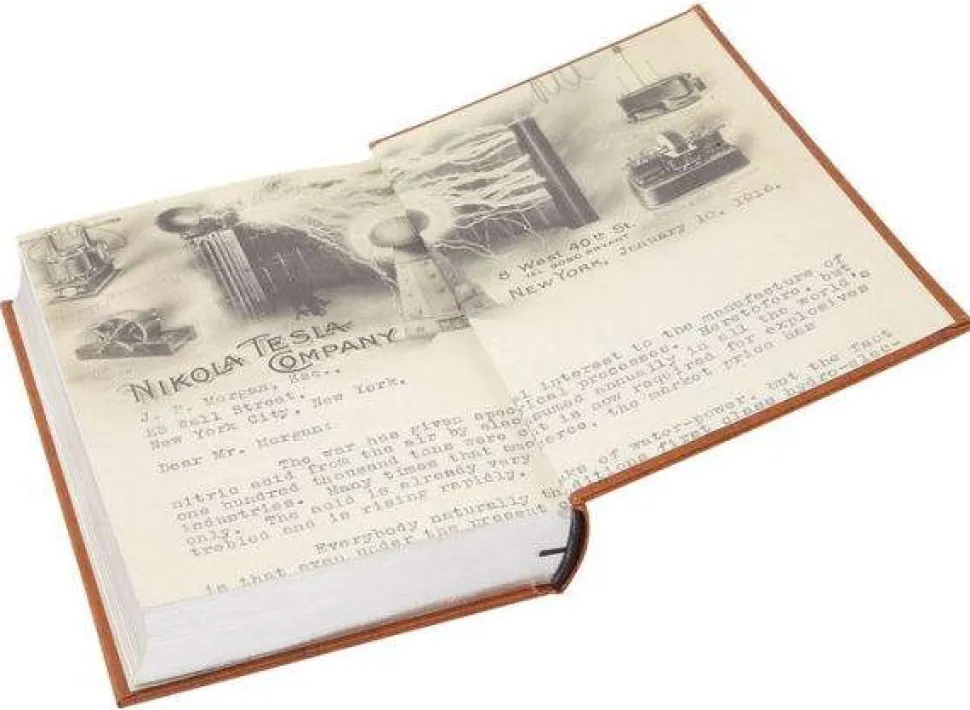 8 West 40th St.
New York, January 10, 1916.
NIKOLA TESLA
COMPANY
J. P. Morgan, Esq.,
23 Wall Street,
New York City, New York.
Dear Mr. Morgan:
The war has given special interest to the manufacture of
nitric acid from the air by electrical processes. Heretofore, but
one hundred thousand tons were consumed annually in all the world's
industries. Many times that amount is now required for explosives
only. The acid is already very scarce, the market price has
trebled and is rising rapidly.
Everybody naturally thinks of water-power, but the fact
is that even under the present conditions first class hydro-elec-